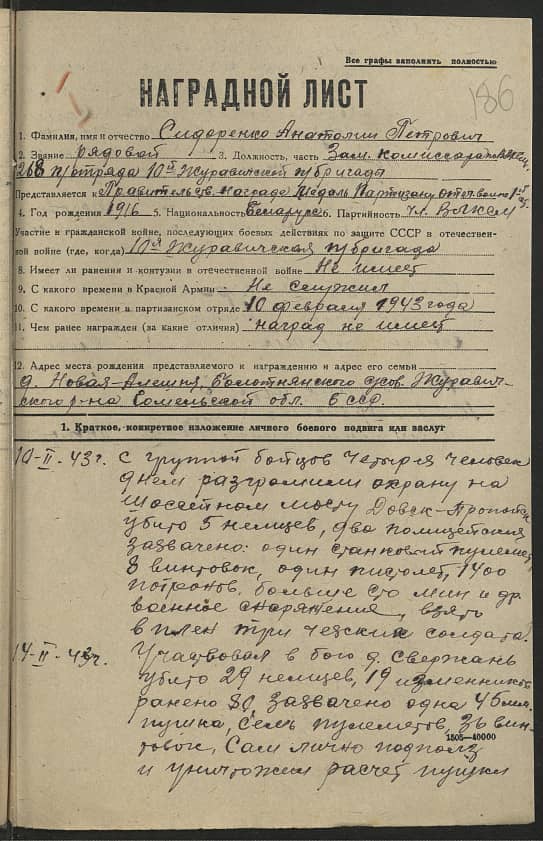 Все графы заполнить полностью
186
НАГРАДНОЙ ЛИСТ
1. Фамилия, имя и отчество Сидоренко Анатолий Петрович
2. Звание рядовой 3. Должность, часть Зам. комиссара по
268 п/отряда 10й Журавичской п/бригада
Представляется к Правительств. награде медаль Партизану отеч. войны
4. Год рождения 1916 5. Национальность Беларус 6. Партийность чл. ВЛКСМ
Участие в гражданской войне, последующих боевых действиях по защите СССР в отечествен-
ной войне (где, когда) 10я Журавичская п/бригада
8. Имеет ли ранения и контузии в отечественной войне Не имеет
9. С какого времени в Красной Армии Не служил
10. С какого времени в партизанском отряде 10 февраля 1943 года
11. Чем ранее награжден (за какие отличия) наград не имеет
12. Адрес места рождения представляемого к награждению и адрес его семьи
д. Новая-Алешня, Болотнянского с/сов. Журавич-
ского р-на Гомельской обл. БССР.
1. Краткое, конкретное изложение личного боевого подвига или заслуг
10-II-43г. с группой бойцов четыря человек
днем разгромили охрану на
шоссейном мосту Довск-Пропойск
убито 5 немцев, два полицейския
захвачено: один станковый пулемет,
8 винтовок, один пистолет, 1400
потронов, больше сто мин и др.
военное снаряжение, взять
в плен три чехских солдата.
14-II-43г. Участвовал в бою д. Свержань
убито 29 немцев, 19 изменников
ранено захвачено одна 45 мм.
пушка, семь пулеметов, 36 вин-
товок, Сам лично подполз
1505—40000
и уничтожил расчет пушки